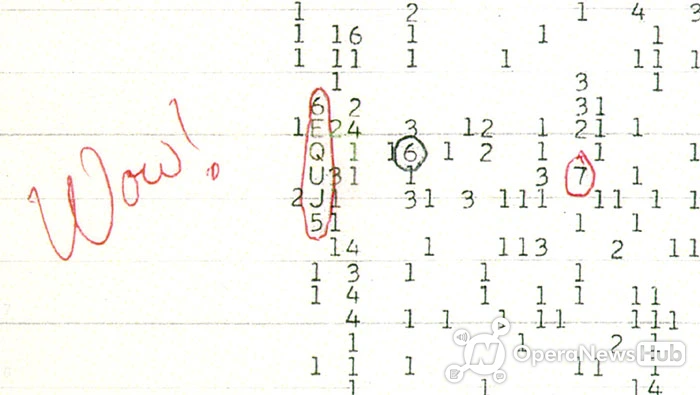 1 2 1 4 3
1 16 1 1 1
1 11 1 1 11 1
1 3 1
6 2 31
1 E24 3 12 1 21 1
Q 1 16 1 2 1 4 1 1
Wow!
U31 1 3 7 1
2 J1 31 3 111 11 1 1
51 1 1
14 1 113 2 11
1 3 1 1 1
1 4 1 1 1 11
4 1 1 1 11 111
1 1 2 1
1 1 1 11 1
1 1 14
OperaNewsHub